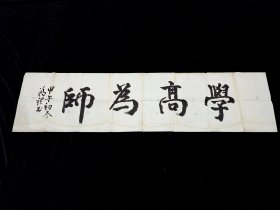 學高為師
甲午初冬